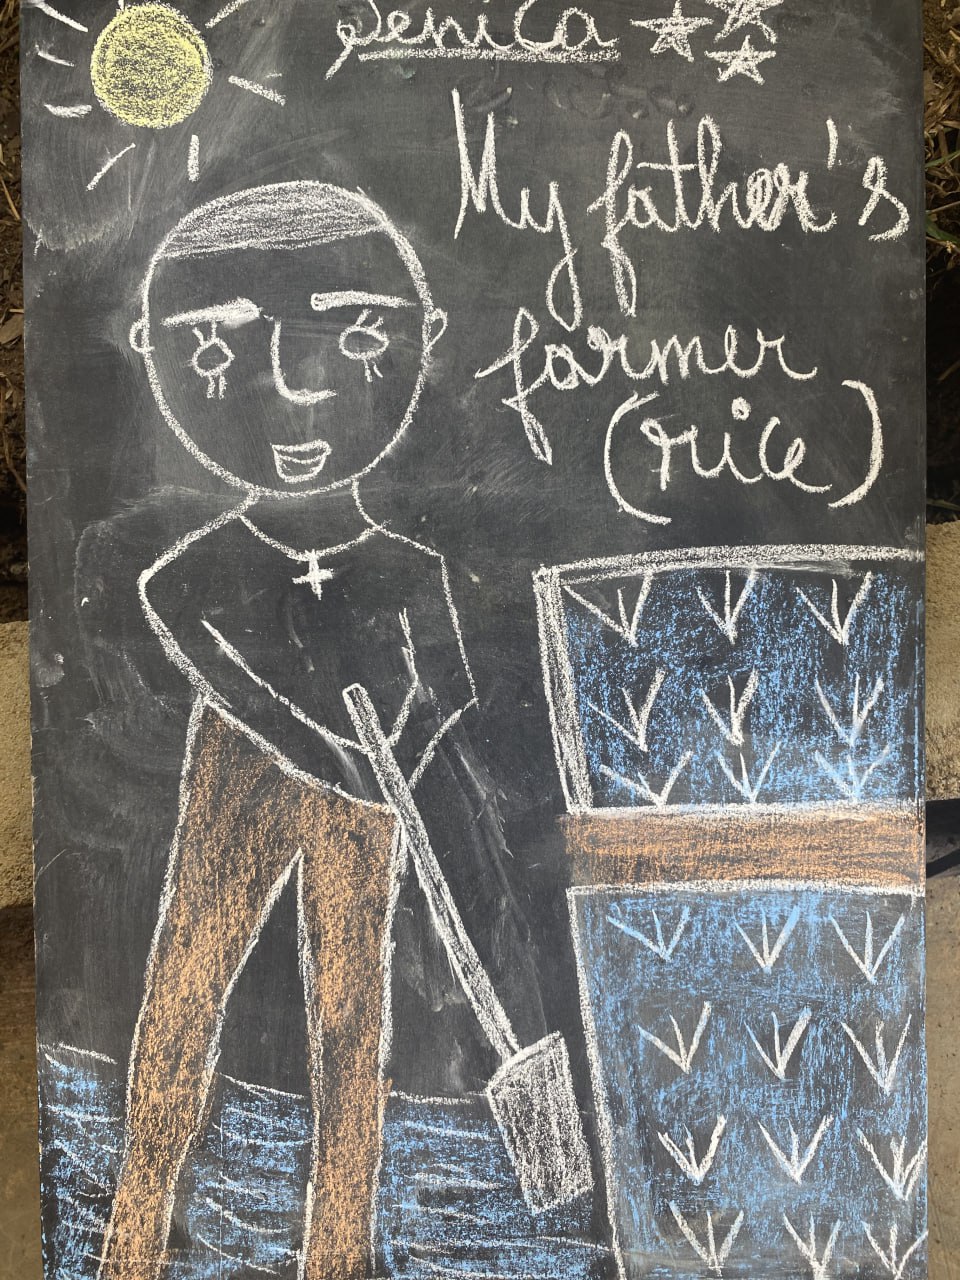 Jenica
My father's
farmer
(rice)